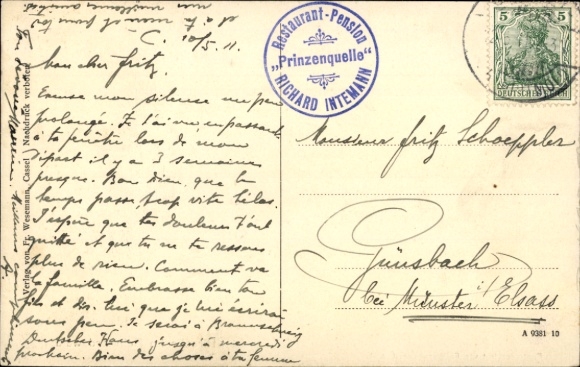 C. 10/5. 11.
Mon cher Fritz,
Excuse mon silence un peu
prolongé. Je t'ai vu en passant
à ta fenêtre lors de mon
départ il y a 3 semaines
presque. Bon Dieu, que le
temps passe, trop vite hélas.
J'espère que tes douleurs t'ont
quitté et que tu ne te ressens
plus de rien. Comment va
ta famille. Embrasse bien ton
fils et dis lui que je lui écrirai
sous peu. Je serai à Braunschweig
Deutsches Haus jusqu'à mercredi
prochain. Bien des choses à ta femme
et à toi
mon
Verlag von Fr. Wesemann, Cassel. Nachdruck verboten.
Restaurant-Pension
„Prinzenquelle“
RICHARD INTEMANN
5 5
DEUTSCHES REICH
Monsieur Fritz Schoeppler
Günsbach
bei Münster i/Elsass
A 9381 10